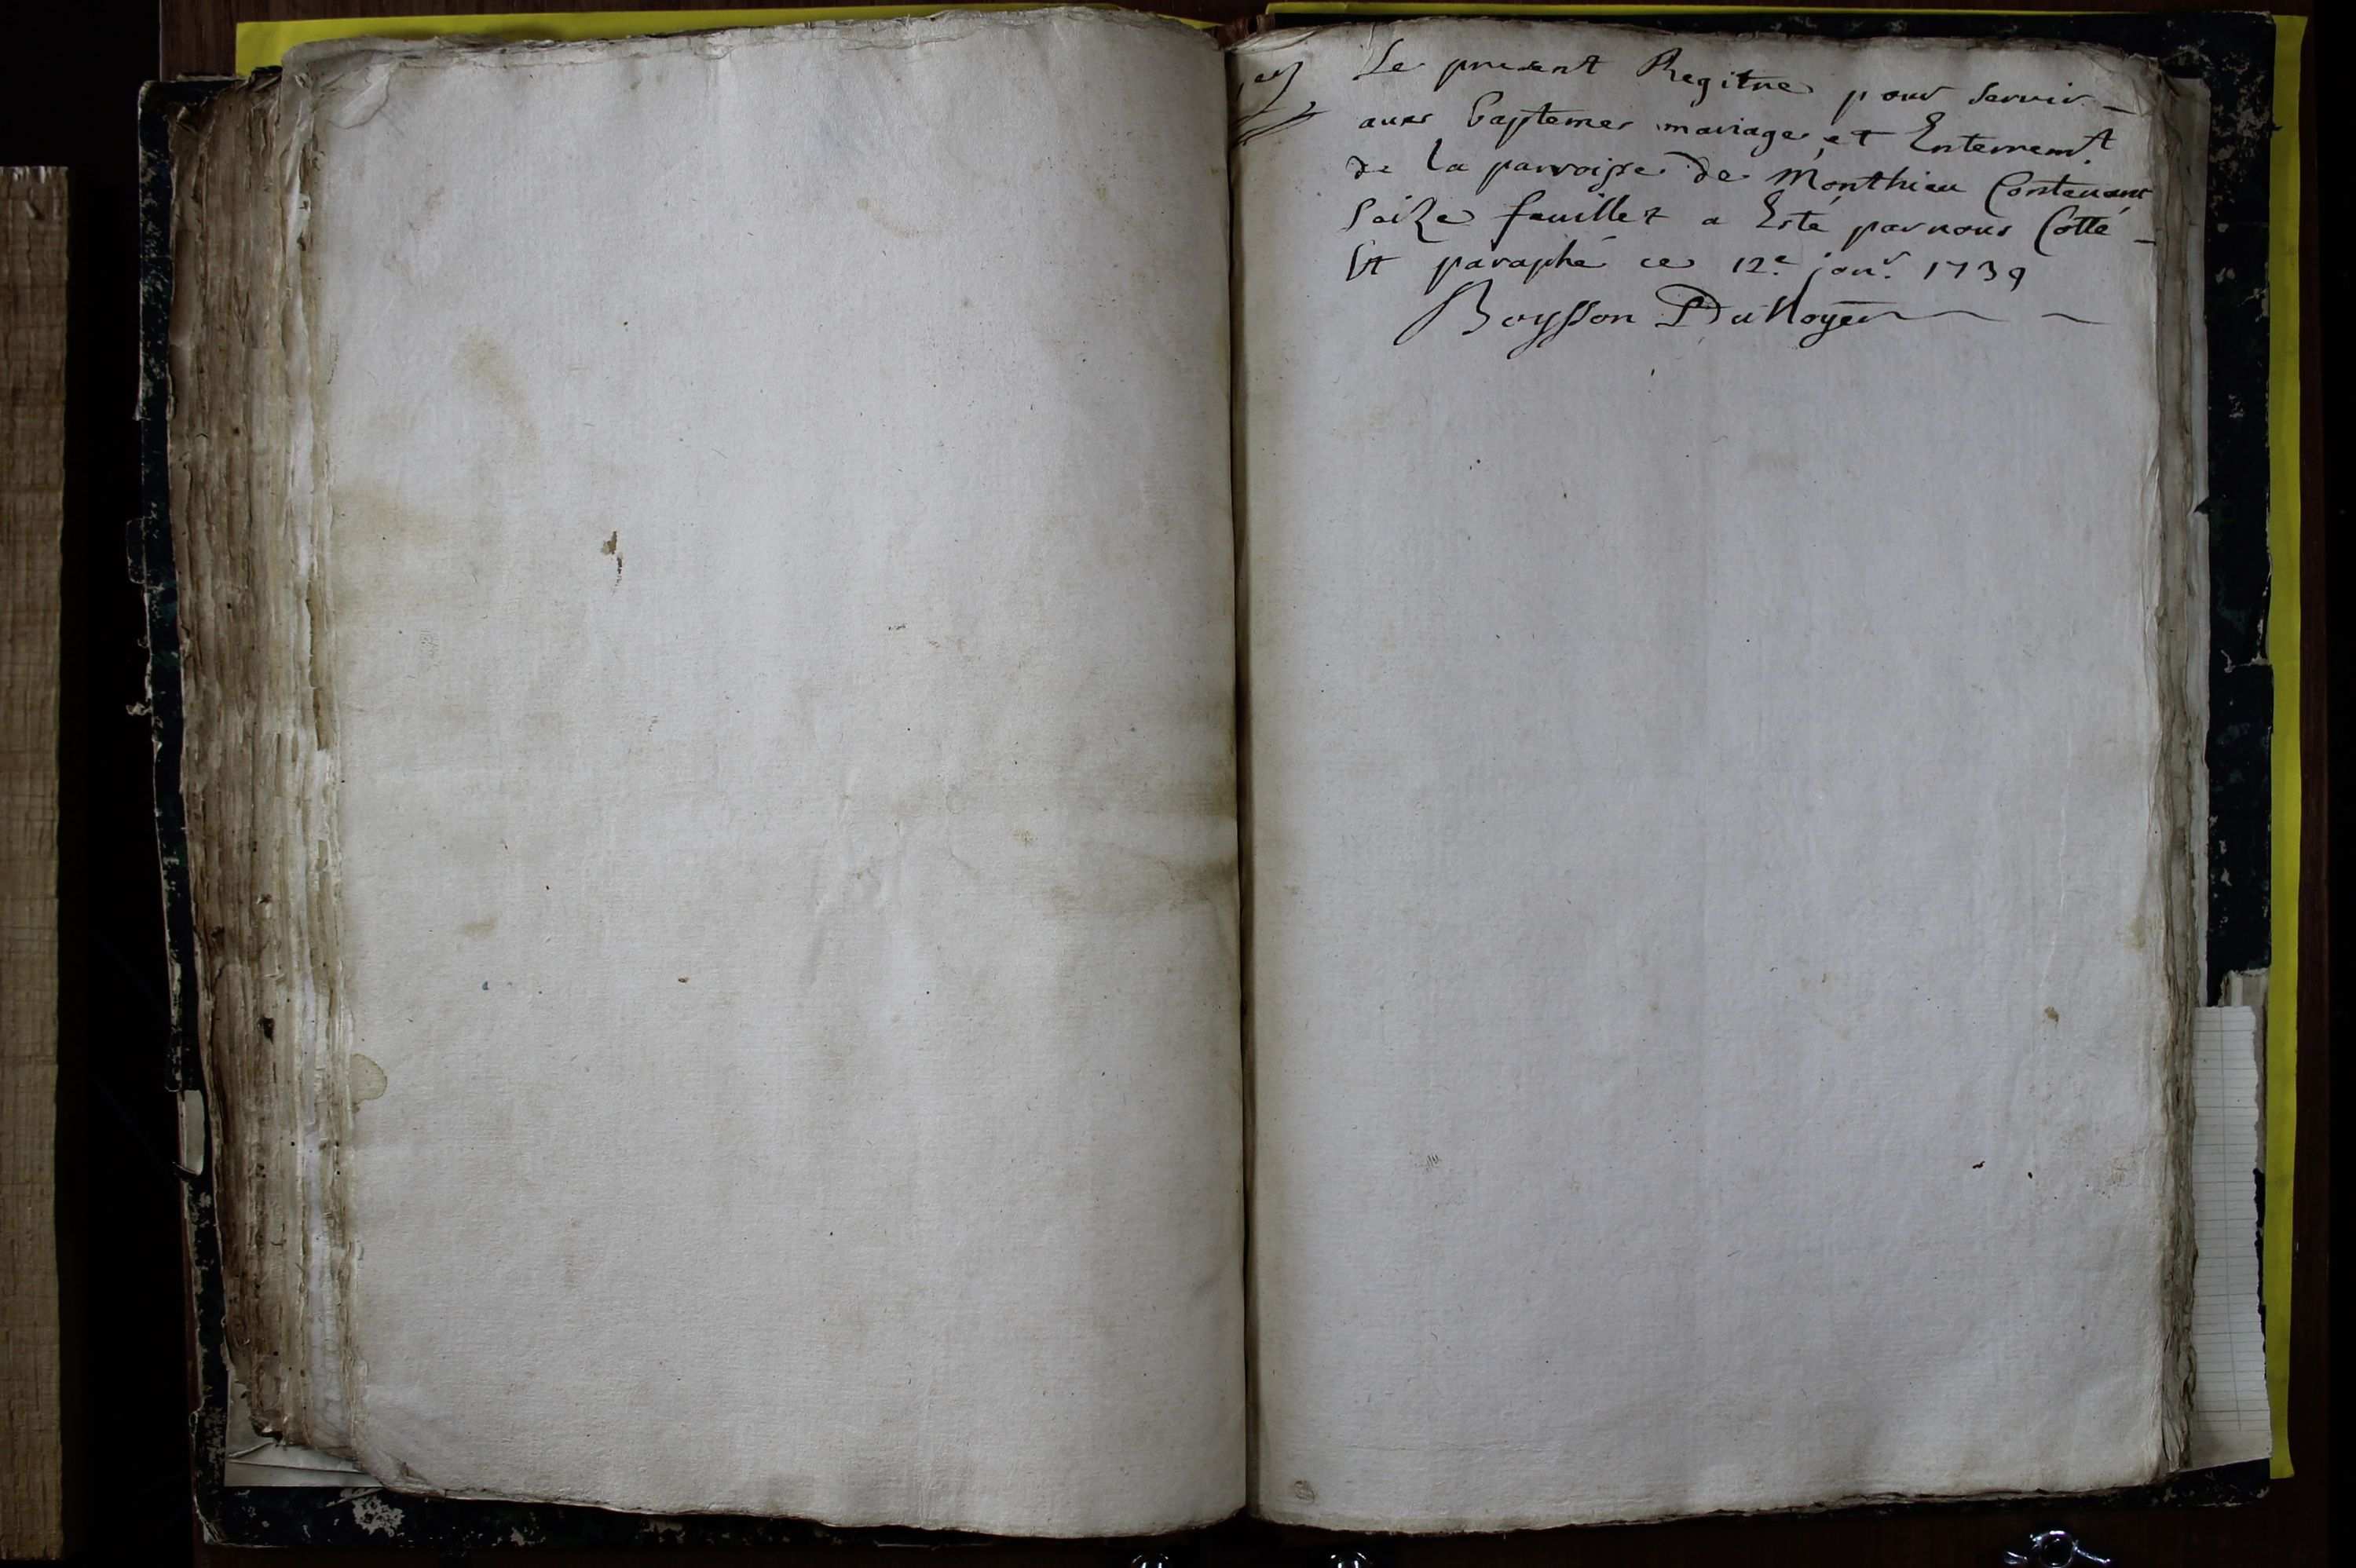 Le present Regitre pour servir
aux baptemes mariages et Enterremt.
de la parroisse de Monthieu Contenant
Seize feuillez a Esté par nous Cotté
Et paraphé ce 12e janr. 1739
Boysson DuNoyer